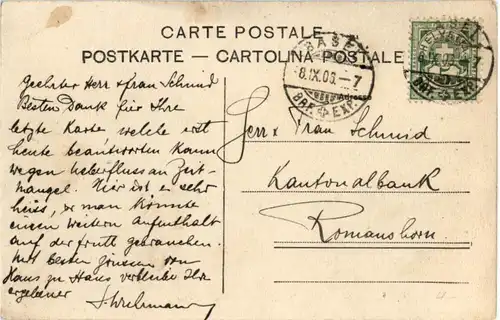 CARTE POSTALE.
POSTKARTE — CARTOLINA POSTALE
BASEL
8.IX.06.–7
BRF. EXP.
HELVETIA
Adresse
Geehrter Herr & Frau Schmid
Besten Dank für Ihre
letzte Karte welche erst
heute beantworten kann
wegen Ueberfluss an Zeit-
mangel. Hier ist es sehr
heiss, & man könnte
einen weitern Aufenthalt
auf der Frutt gebrauchen.
Mit besten Grüssen von
Haus zu Haus verbleibe Ihr
ergebener
Herr & Frau Schmid
Kantonalbank
Romanshorn